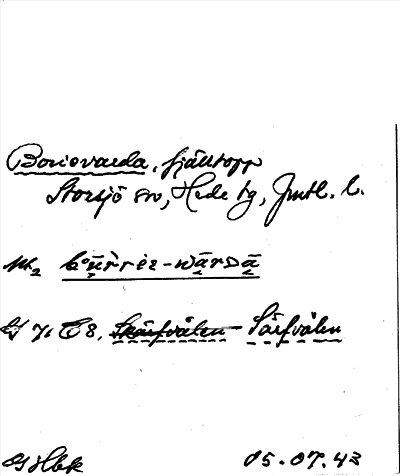 Borievarda, fjälltopp
Storsjö sn, Hede tg, Jmtl. l.
bºūrriez-wārDā
71 C 8, Skärfvålen Särfvålen
05.07.43